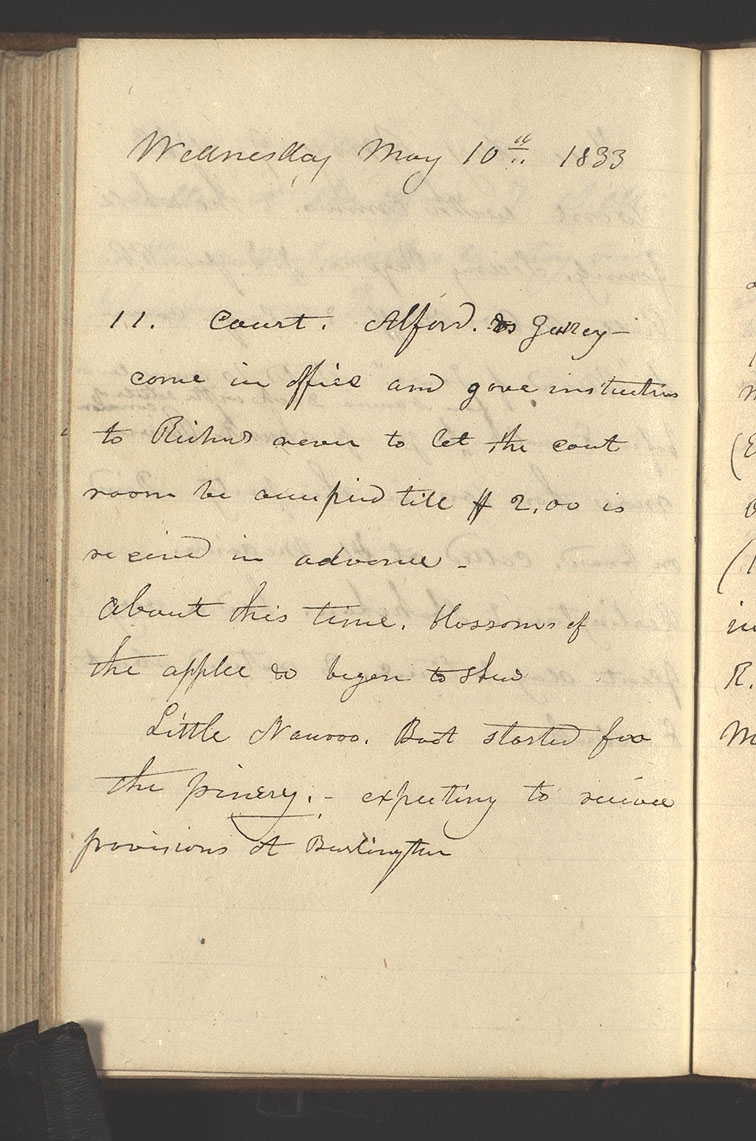 Wednesday May 10th 1833
11. Court. Alford.
come in office and gave instructions
to Richrds never to let the court
room be occupied till $2.00 is
receivd in advance -
about this time. blossoms of
the apple began to shew
Little Nauvoo. Boat started for
the pinery. - expecting to receive
provisions at Burlington